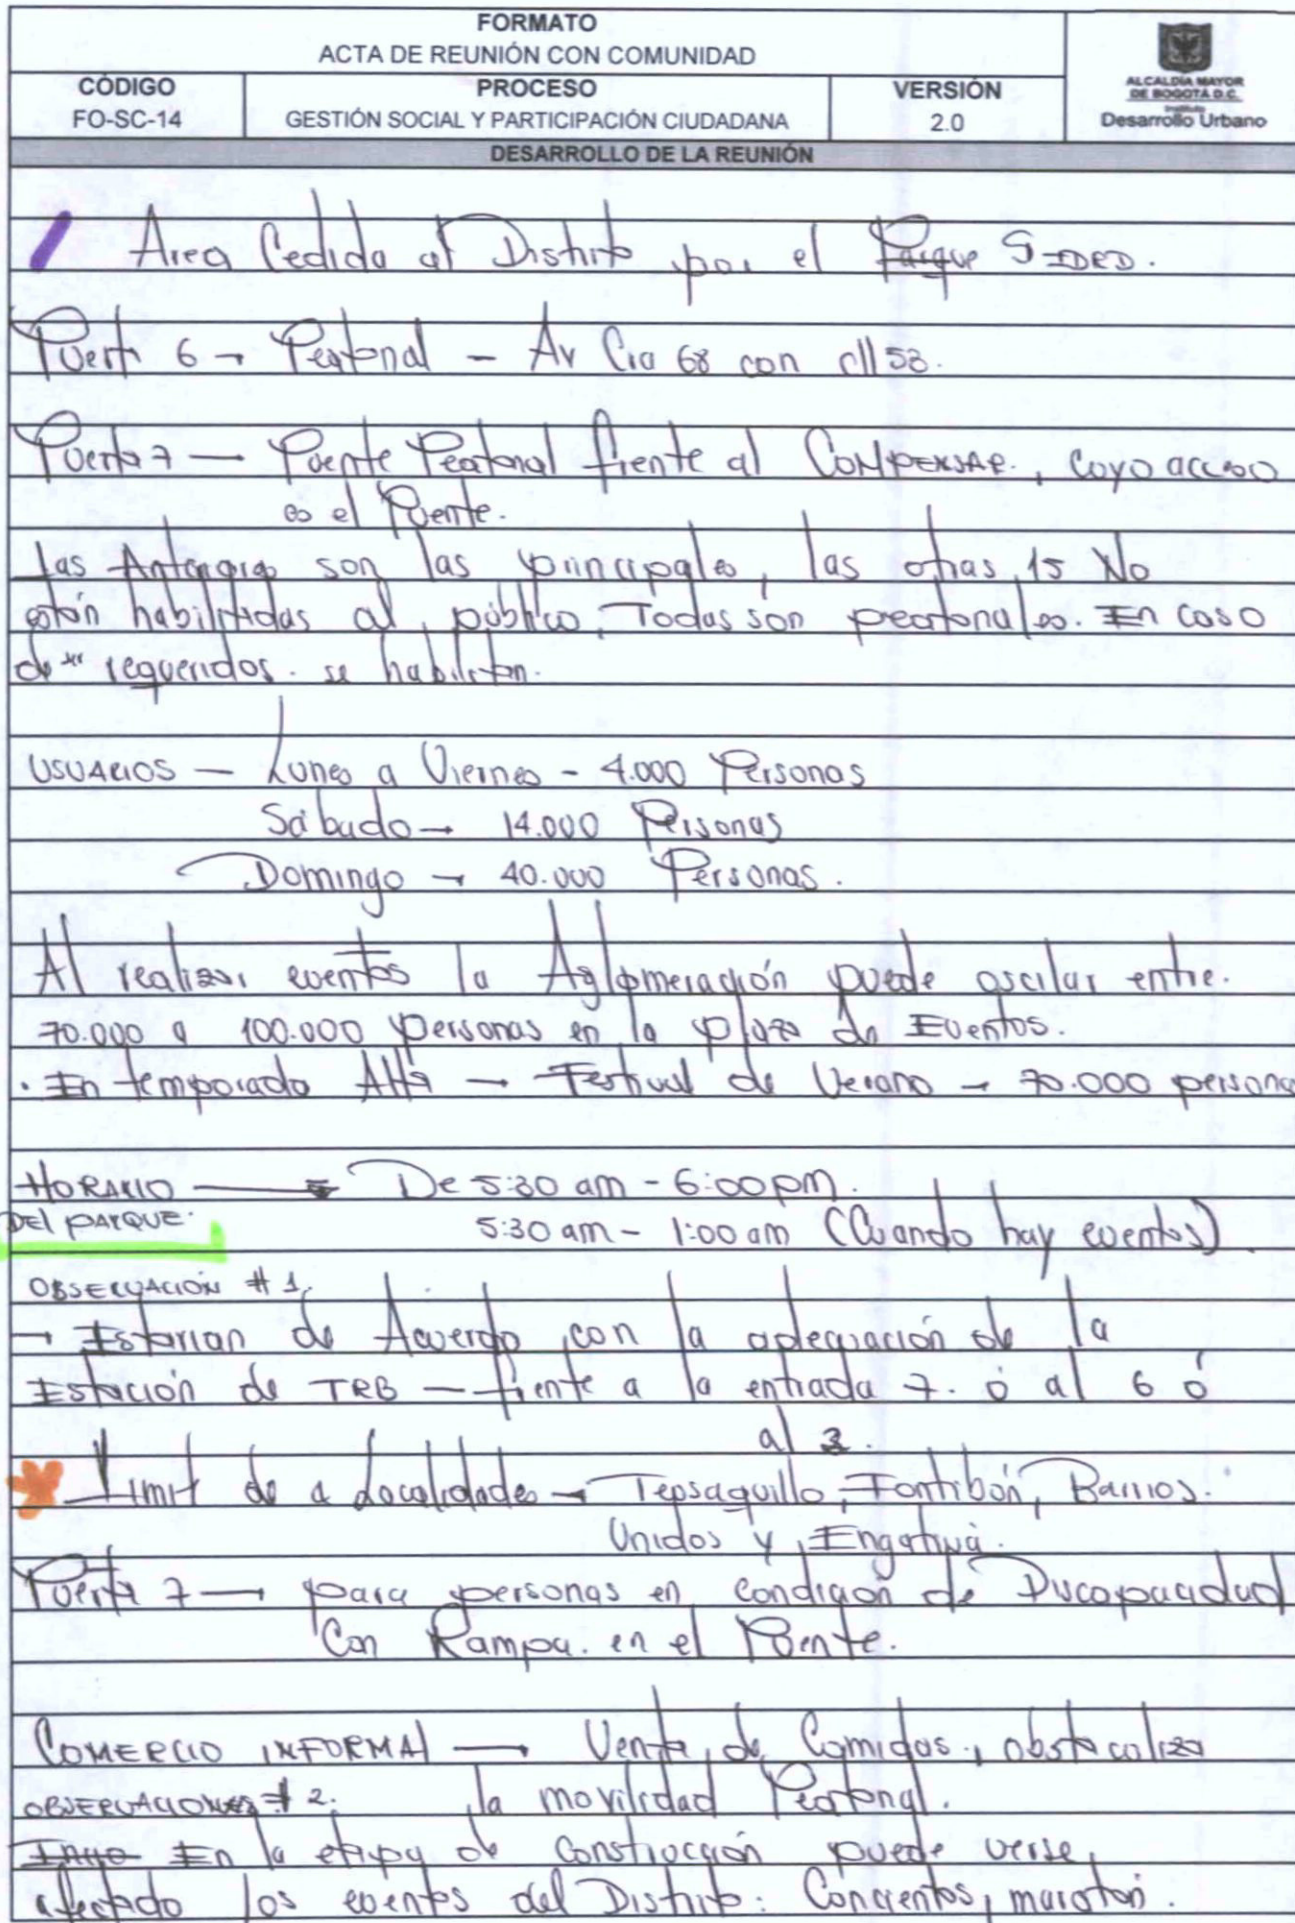 FORMATO
ACTA DE REUNIÓN CON COMUNIDAD
CÓDIGO
FO-SC-14
PROCESO
GESTIÓN SOCIAL Y PARTICIPACIÓN CIUDADANA
VERSIÓN
2.0
ALCALDÍA MAYOR
DE BOGOTÁ D.C.
Instituto
Desarrollo Urbano
DESARROLLO DE LA REUNIÓN
Area Cedida al Distrito por el Parque IDRD.
Puerta 6 → Peatonal - Av Cra 68 con cll 53.
Puerta 7 — Puente Peatonal frente al COMPENSAR, cuyo acceso
es el Puente.
Las Anteriores son las principales, las otras 15 No
están habilitadas al público. Todas son peatonales. En caso
de requeridos se habilitan.
USUARIOS — Lunes a Viernes - 4.000 Personas
Sábado → 14.000 Personas
Domingo → 40.000 Personas.
Al realizar eventos la Aglomeración puede oscilar entre.
70.000 a 100.000 personas en la plaza de Eventos.
. En temporada Alta → Festival de Verano → 70.000 persona
HORARIO → De 5:30 am - 6:00 pm.
DEL PARQUE.
5:30 am - 1:00 am (Cuando hay eventos)
OBSERVACIÓN # 1.
→ Estarian de Acuerdo con la adecuación de la
Estación de TRB — frente a la entrada 7. ó al 6 ó
al 3.
Limit de 4 Localidades → Teusaquillo, Fontibón, Barrios.
Unidos y Engativá.
Puerta 7 → para personas en condición de Discapacidad
Con Rampa. en el Puente.
COMERCIO INFORMAL → Venta de Comidas, obstaculiza
la movilidad Peatonal.
OBSERVACIONES # 2.
En la etapa de Construcción puede verse
afectado los eventos del Distrito: Concientos, maraton.